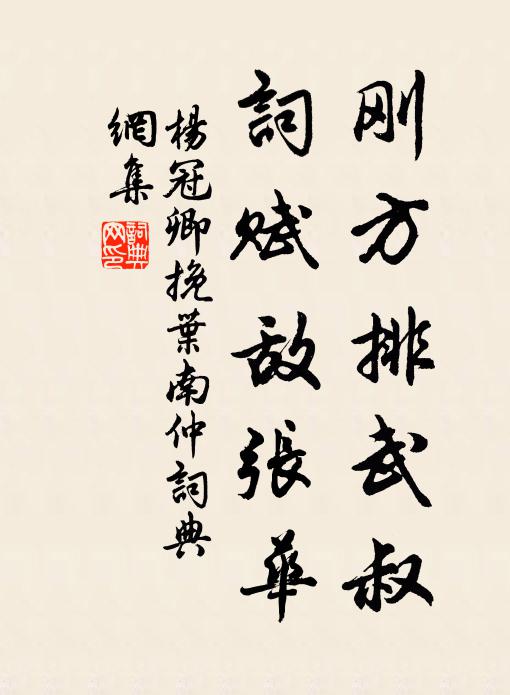 刚方排武叔
詞赋敌張華
楊冠卿挽葉南仲詞典
網集
詞典
网印